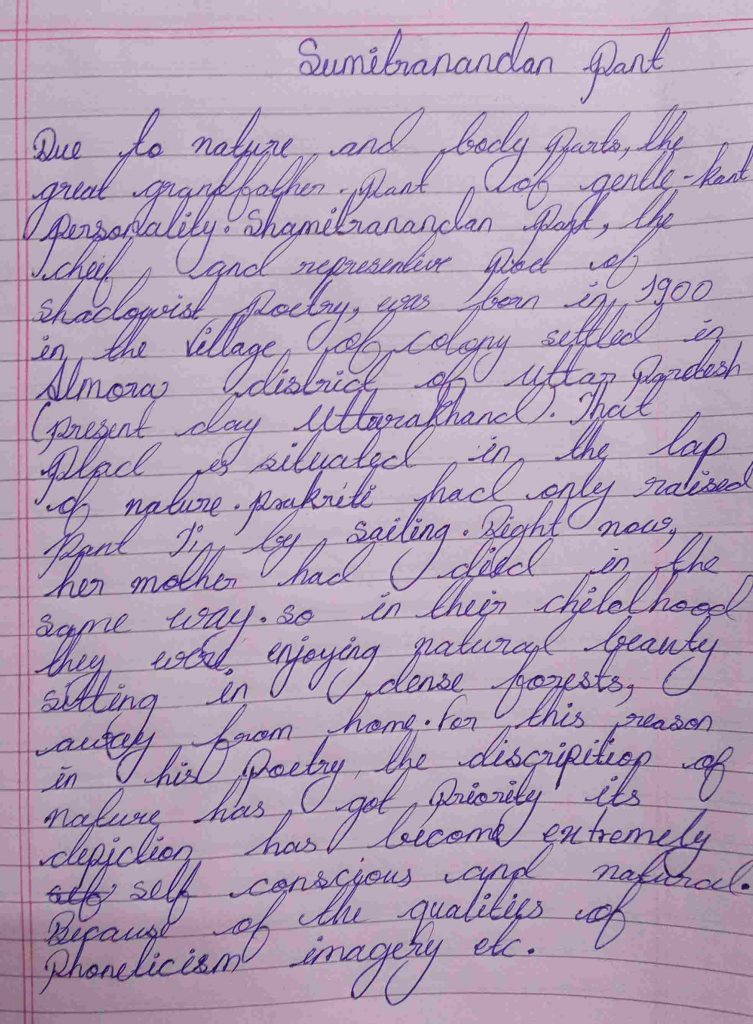 Sumitranandan Pant
Due to nature and body parts, the
great grandfather. Pant of gentle-kant
Personality. Shamitranandan Pant, the
cheif and representive poet of
Shadowist Poetry, was born in 1900
in the Village of colony settled in
Almora district of Uttar Pardesh
(present day Uttarakhand). That
Placd is situated in the lap
of nature. Prakriti had only raised
Pant Ji by Sailing. Right now,
her mother had died in the
same way. So in their childhood
they were enjoying natural beauty
sitting in dense forests,
away from home. For this reason
in his Poetry, the discripition of
nature has got Priority its
depiction has become extremely
self conscious and natural.
Because of the qualities of
Phoneticism imagery etc.